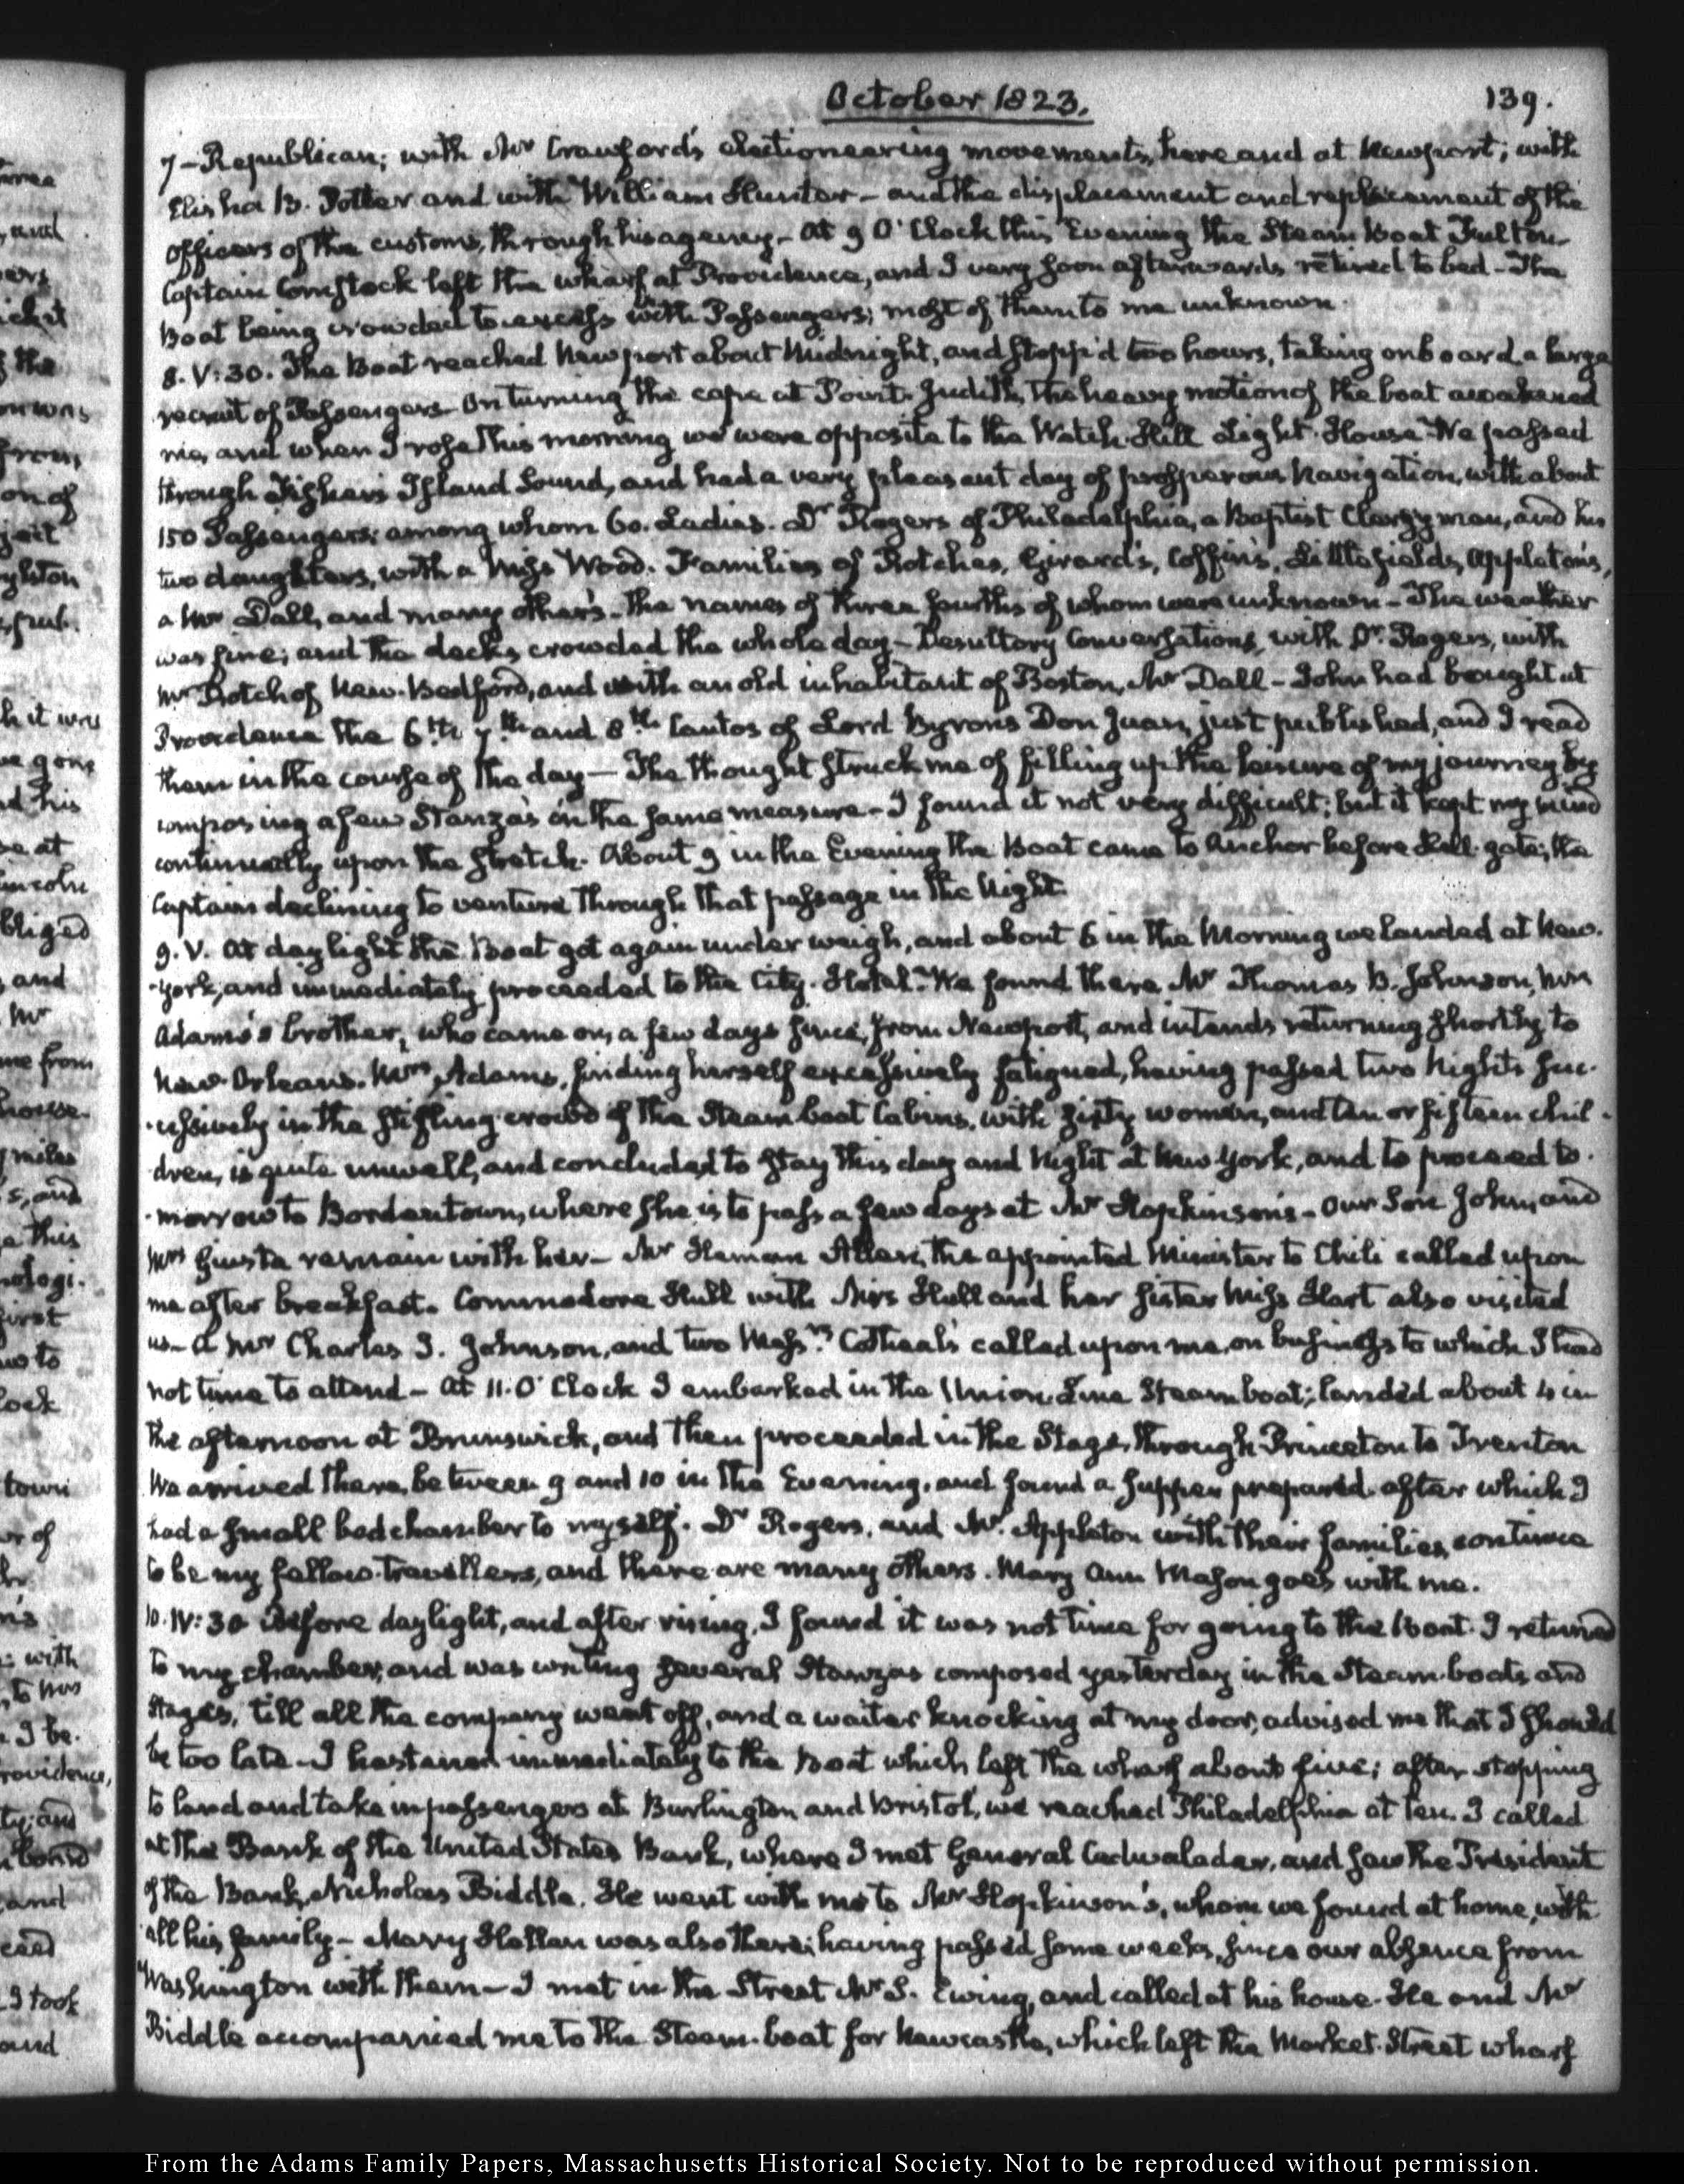 October 1823.
139.
7 – Republican; with Mr Crawford's electioneering movements, here and at Newport; with
Elisha B. Potter and with William Hunter – and the displacement and replacement of the
officers of the customs, through his agency – At 9 O'Clock this Evening the Steam Boat Fulton
Captain Comstock left the wharf at Providence, and I very soon afterwards retired to bed – The
Boat being crowded to excess with Passengers; most of them to me unknown.
8. V:30. The Boat reached Newport about Midnight, and stopp'd two hours, taking on board a large
recruit of Passengers – On turning the cape at Point Judith, the heavy motion of the boat awakened
me, and when I rose this morning we were opposite to the Watch-Hill Light-House – We passed
through Fisher's Island Sound, and had a very pleasant day of prosperous Navigation, with about
150 Passengers; among whom 60. Ladies. Dr Rogers of Philadelphia, a Baptist Clergyman, and his
two daughters, with a Miss Wood. Families of Rotches, Girard's, Coffin's, Littlefields, Appleton's,
a Mr Dall, and many other's – the names of three fourths of whom were unknown – The weather
was fine; and the decks crowded the whole day – Desultory Conversations, with Dr. Rogers, with
Mr Rotch of New-Bedford, and with an old inhabitant of Boston, Mr Dall – John had bought at
Providence the 6th 7th and 8th Cantos of Lord Byrons Don Juan, just published, and I read
them in the course of the day – The thought struck me of filling up the leisure of my journey by
composing a few Stanza's in the same measure – I found it not very difficult; but it kept my mind
continually upon the stretch. About 9 in the Evening the Boat came to Anchor before Hell-gate; the
Captain declining to venture through that passage in the Night.
9. V. At day light the Boat got again under weigh, and about 6 in the Morning we landed at New-
-York, and immediately proceeded to the City-Hotel – We found there Mr Thomas B. Johnson, Mrs
Adams's brother, who came on, a few days since, from Newport, and intends returning shortly to
New-Orleans. Mrs Adams, finding herself excessively fatigued, having passed two Nights suc-
-cessively in the stifling crowd of the Steam boat Cabins, with sixty women, and ten or fifteen chil-
dren, is quite unwell, and concluded to stay this day and Night at New York, and to proceed to-
-morrow to Bordentown, where she is to pass a few days at Mr Hopkinson's – Our Son John, and
Mrs Giusta remain with her – Mr Heman Allen, the appointed Minister to Chili called upon
me after breakfast. Commodore Hull with Mrs Hull and her sister Miss Hart also visited
us – A Mr Charles J. Johnson, and two Messrs Catheal's called upon me, on business to which I had
not time to attend – At 11. O'Clock I embarked in the Union Line Steam boat; landed about 4 in
the afternoon at Brunswick, and then proceeded in the Stage, through Princeton to Trenton
We arrived there, between 9 and 10 in the Evening, and found a supper prepared, after which I
had a small bed chamber to myself. Dr Rogers, and Mr. Appleton with their families, continue
to be my fellow-travellers, and there are many others. Mary Ann Mason goes with me.
10. IV:30 Before daylight, and after rising, I found it was not time for going to the Boat. I returned
to my chamber, and was writing several Stanzas composed yesterday in the Steam-boats and
Stages, till all the company went off, and a waiter knocking at my door, advised me that I should
be too late – I hastened immediately to the Boat which left the wharf about five; after stopping
to land and take in passengers at Burlington and Bristol, we reached Philadelphia at ten. I called
at the Bank of the United States Bank, where I met General Cadwalader, and saw the President
of the Bank, Nicholas Biddle. He went with me to Mr Hopkinson's, whom we found at home, with
all his family – Mary Hellen was also there; having passed some weeks, since our absence from
Washington with them – I met in the Street Mr S. Ewing, and called at his house. He and Mr
Biddle accompanied me to the Steam-boat for Newcastle, which left the Market-Street wharf
From the Adams Family Papers, Massachusetts Historical Society. Not to be reproduced without permission.